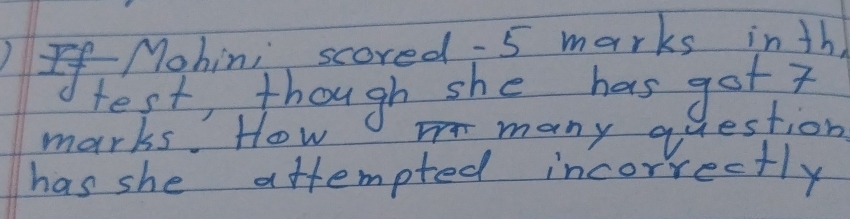 ) If Mohini scored -5 marks in th
test, though she has got 7
marks. How many question
has she attempted incorrectly